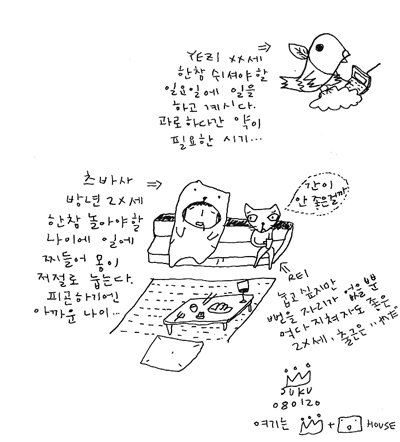 YERI XX세 ⇒
한참 쉬셔야 할
일요일에 일을
하고 계시다.
과로하다간 약이
필요한 시기...
츠바사 ⇒
방년 2X세
한창 놀아야할
나이에 일에
찌들어 몸이
저절로 눕는다.
피곤하기엔
아까운 나이...
간이
안 좋은걸까
REI
눕고 싶지만
뻗을 자리가 없을 뿐
먹다 지쳐 자도 좋은
2X세, 출근은
080120
여기는 + HOUSE